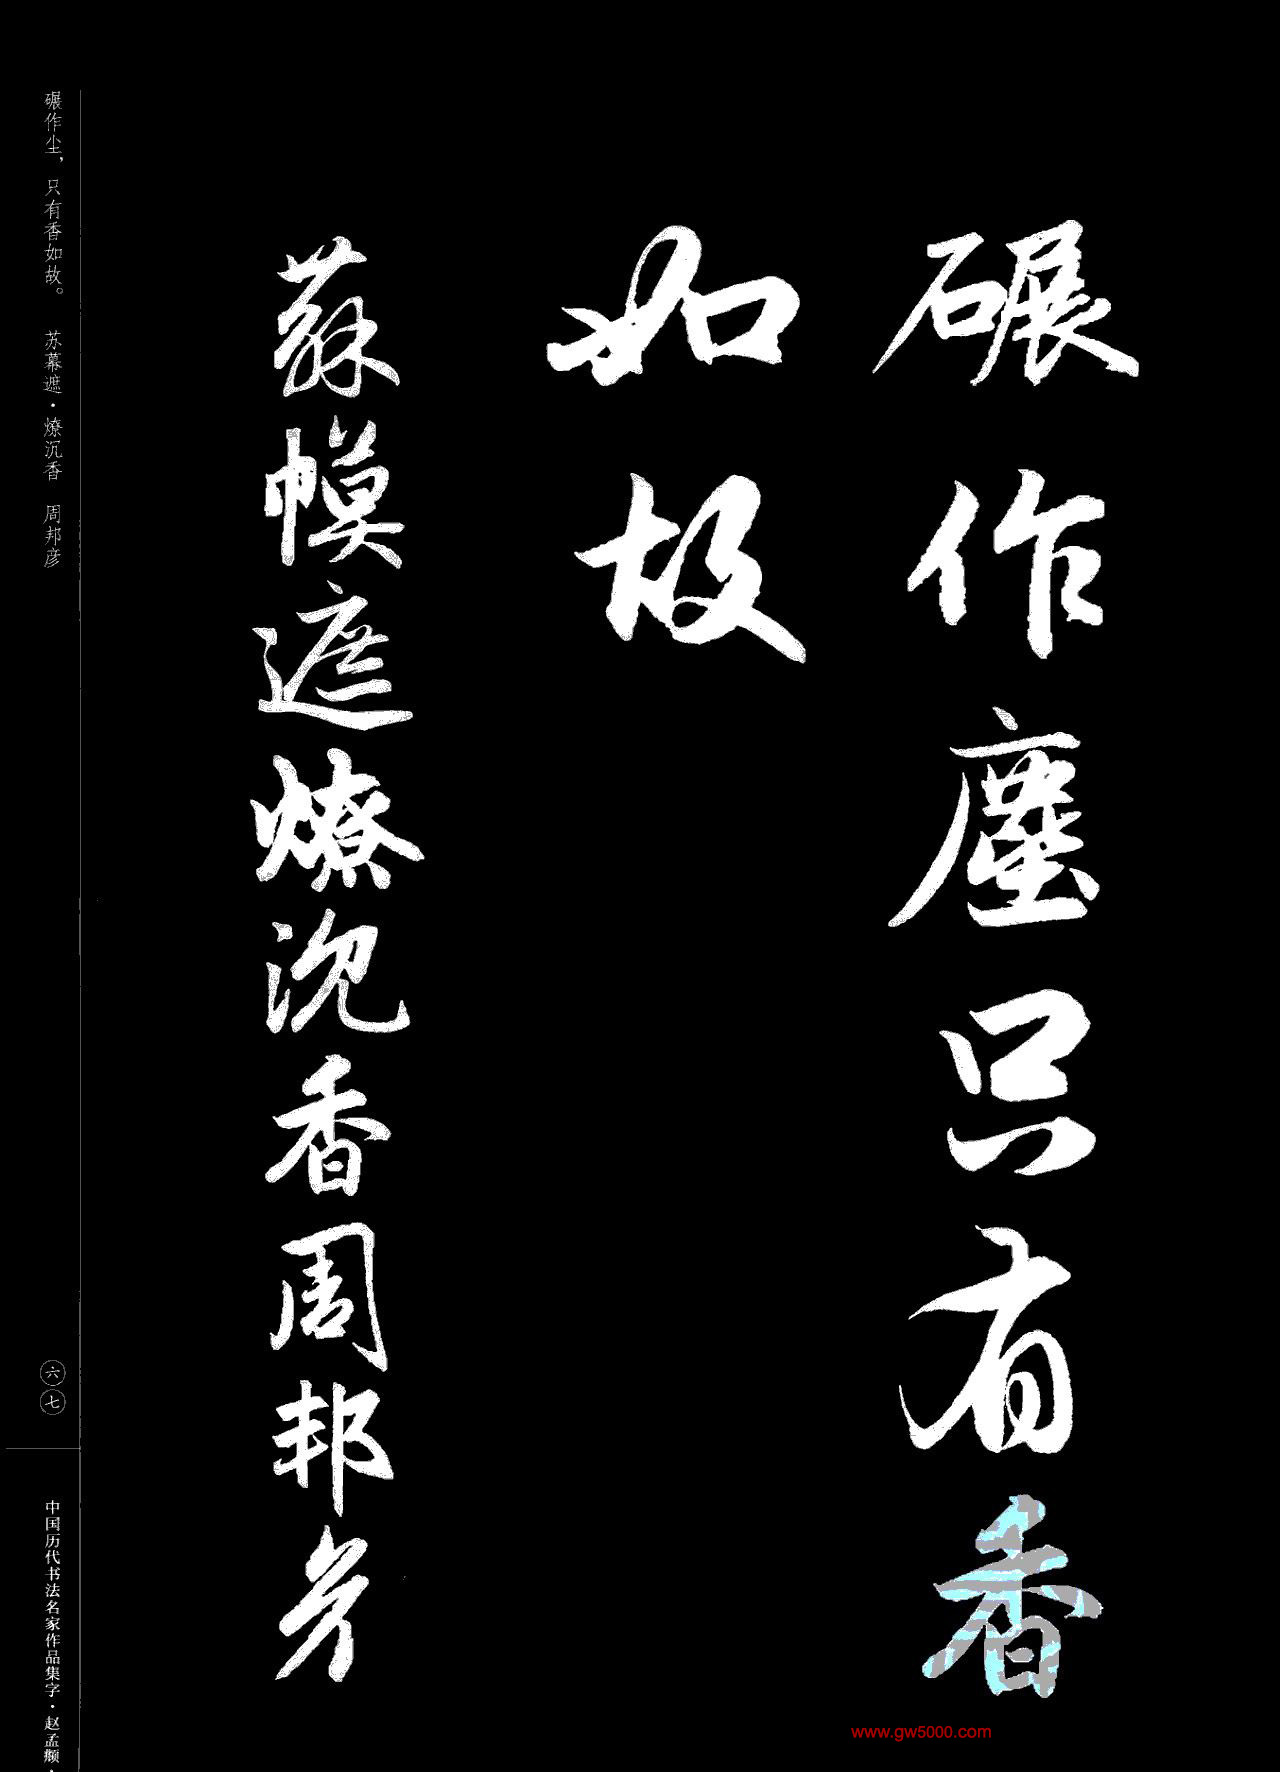 碾作塵只有香
如故
蘇幙遮燎沈香周邦彦
碾作尘，只有香如故。 苏幕遮·燎沉香 周邦彦
六七
中国历代书法名家作品集字·赵孟頫·
www.gw5000.com